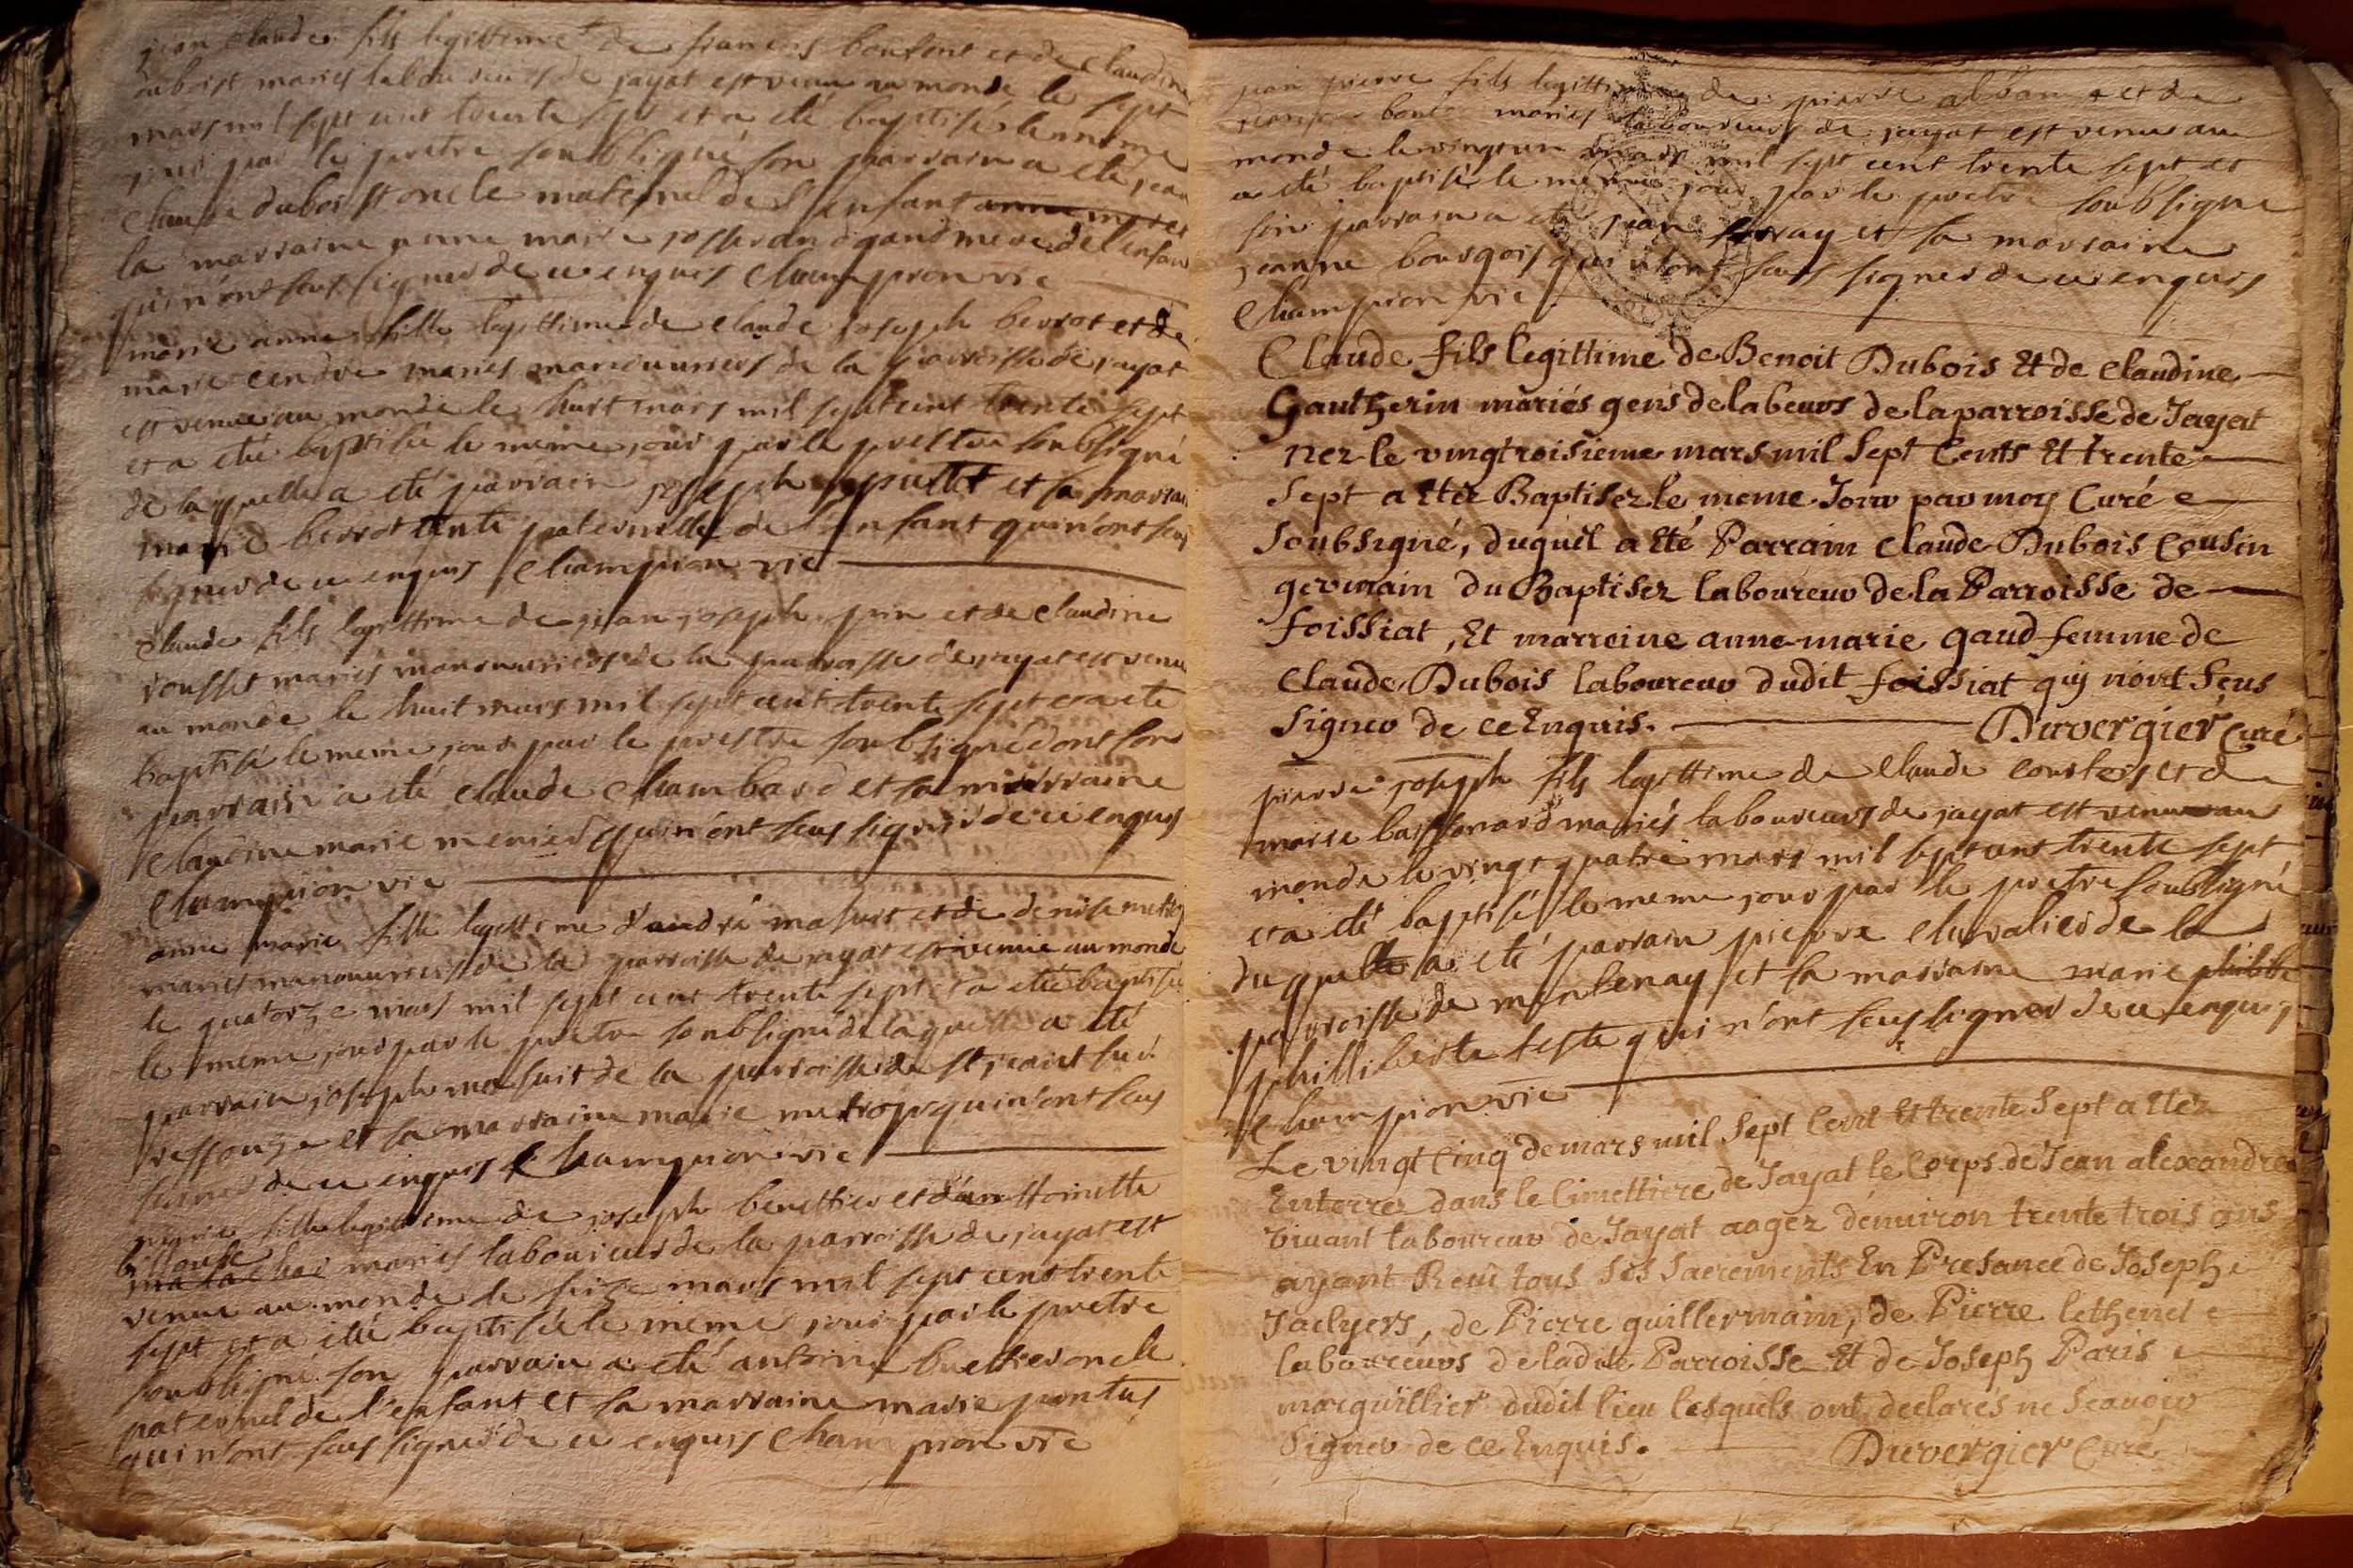 jean claude fils legittime de francois bonfont et de claudine
duboist maries laboureurs de jayat est venu au monde le sept
mars mil sept cent trente sept et a été baptisé le meme
jour par le pretre soubsigné son parrain a été jean
claude duboist oncle maternel de l'enfant
la marraine anne marie josserand grand mere de l'enfan
qui n'ont sçus signer de ce enquis Champion vic
marie anne fille legittime de claude joseph berrot et de
marie cendre mariés manouvriers de la parroisse de jayat
est venue au monde le huit mars mil sept cent trente sept
et a été baptisée le meme jour par le prestre soubsigné
de laquelle a été parrain joseph et sa marrai
marie berrot tante paternelle de l'enfant qui n'ont sçus
signer de ce enquis Champion vic
claude fils legittime de jean joseph pin et de claudine
rousset mariés manouvriers de la parroisse de jayat est venu
au monde le huit mars mil sept cent trente sept et a été
baptisé le meme jour par le prestre soubsigné dont son
parrain a été claude chambard et sa marraine
claudine marie menier qui n'ont sçus signer de ce enquis
Champion vic
anne marie fille legittime d'andré masuit et de denise
mariés manouvriers de la parroisse de jayat est venue au monde
le quatorze mars mil sept cent trente sept et a été baptisée
le meme jour par le pretre soubsigné de laquelle a été
parrain joseph masuit de la parroisse de st jean sur
ressouze et sa marraine marie qui n'ont sçus
signer de ce enquis Champion vic
fille legittime de joseph benettier et d'anthoinette
mariés laboureurs de la parroisse de jayat est
venue au monde le seize mars mil sept cent trente
sept et a été baptisée le meme jour par le pretre
soubsigné son parrain a été antoine oncle
paternel de l'enfant et sa marraine marie pontus
qui n'ont sçus signer de ce enquis Champion vic
jean pierre fils legittime de pierre alban et de
mariés laboureurs de jayat est venu au
monde le vingt un mars mil sept cent trente sept et
a été baptisé le meme jour par le pretre soubsigné
son parrain a été jean et sa marraine
jeanne bourgois qui n'ont sçus signer de ce enquis
Champion vic
Claude fils legittime de Benoit Dubois Et de claudine
Gautherin mariés gens de labeurs de la parroisse de Jayat
nez le vingtroisieme mars mil Sept Cents Et trente
Sept a Eté Baptisez le meme Jour par moy Curé
Soubsigné, duquel a Eté Parrain Claude Dubois Cousin
germain du Baptisez laboureur de la Parroisse de
foissiat, Et marreine anne-marie gaud femme de
Claude Dubois laboureur dudit foissiat quj n'ont Sçus
Signer de ce Enquis. Duvergier Curé
pierre joseph fils legittime de claude et de
marie bassonard mariés laboureurs de jayat est venu au
monde le vingt quatre mars mil sept cent trente sept
et a été baptisé le meme jour par le pretre soubsigné
du quel a été parrain pierre chevalier de la
parroisse de mantenay et sa marraine marie
phillibertte teste qui n'ont sçus signer de ce enquis
Champion vic
Le vingt Cinq de mars mil Sept Cent Et trente Sept a Etez
Enterrez dans le Cimettiere de Jayat le Corps de Jean alexandre
vivant laboureur de Jayat aagez d'enuiron trente trois ans
ayant Receu tous Ses Sacrements En Presance de Joseph
Jaclyers, de Pierre guillermain, de Pierre lethenet
laboureurs de ladite Parroisse Et de Joseph Paris
marguillier dudit lieu lesquels ont declarés ne Scauoir
Signer de ce Enquis. Duvergier Curé